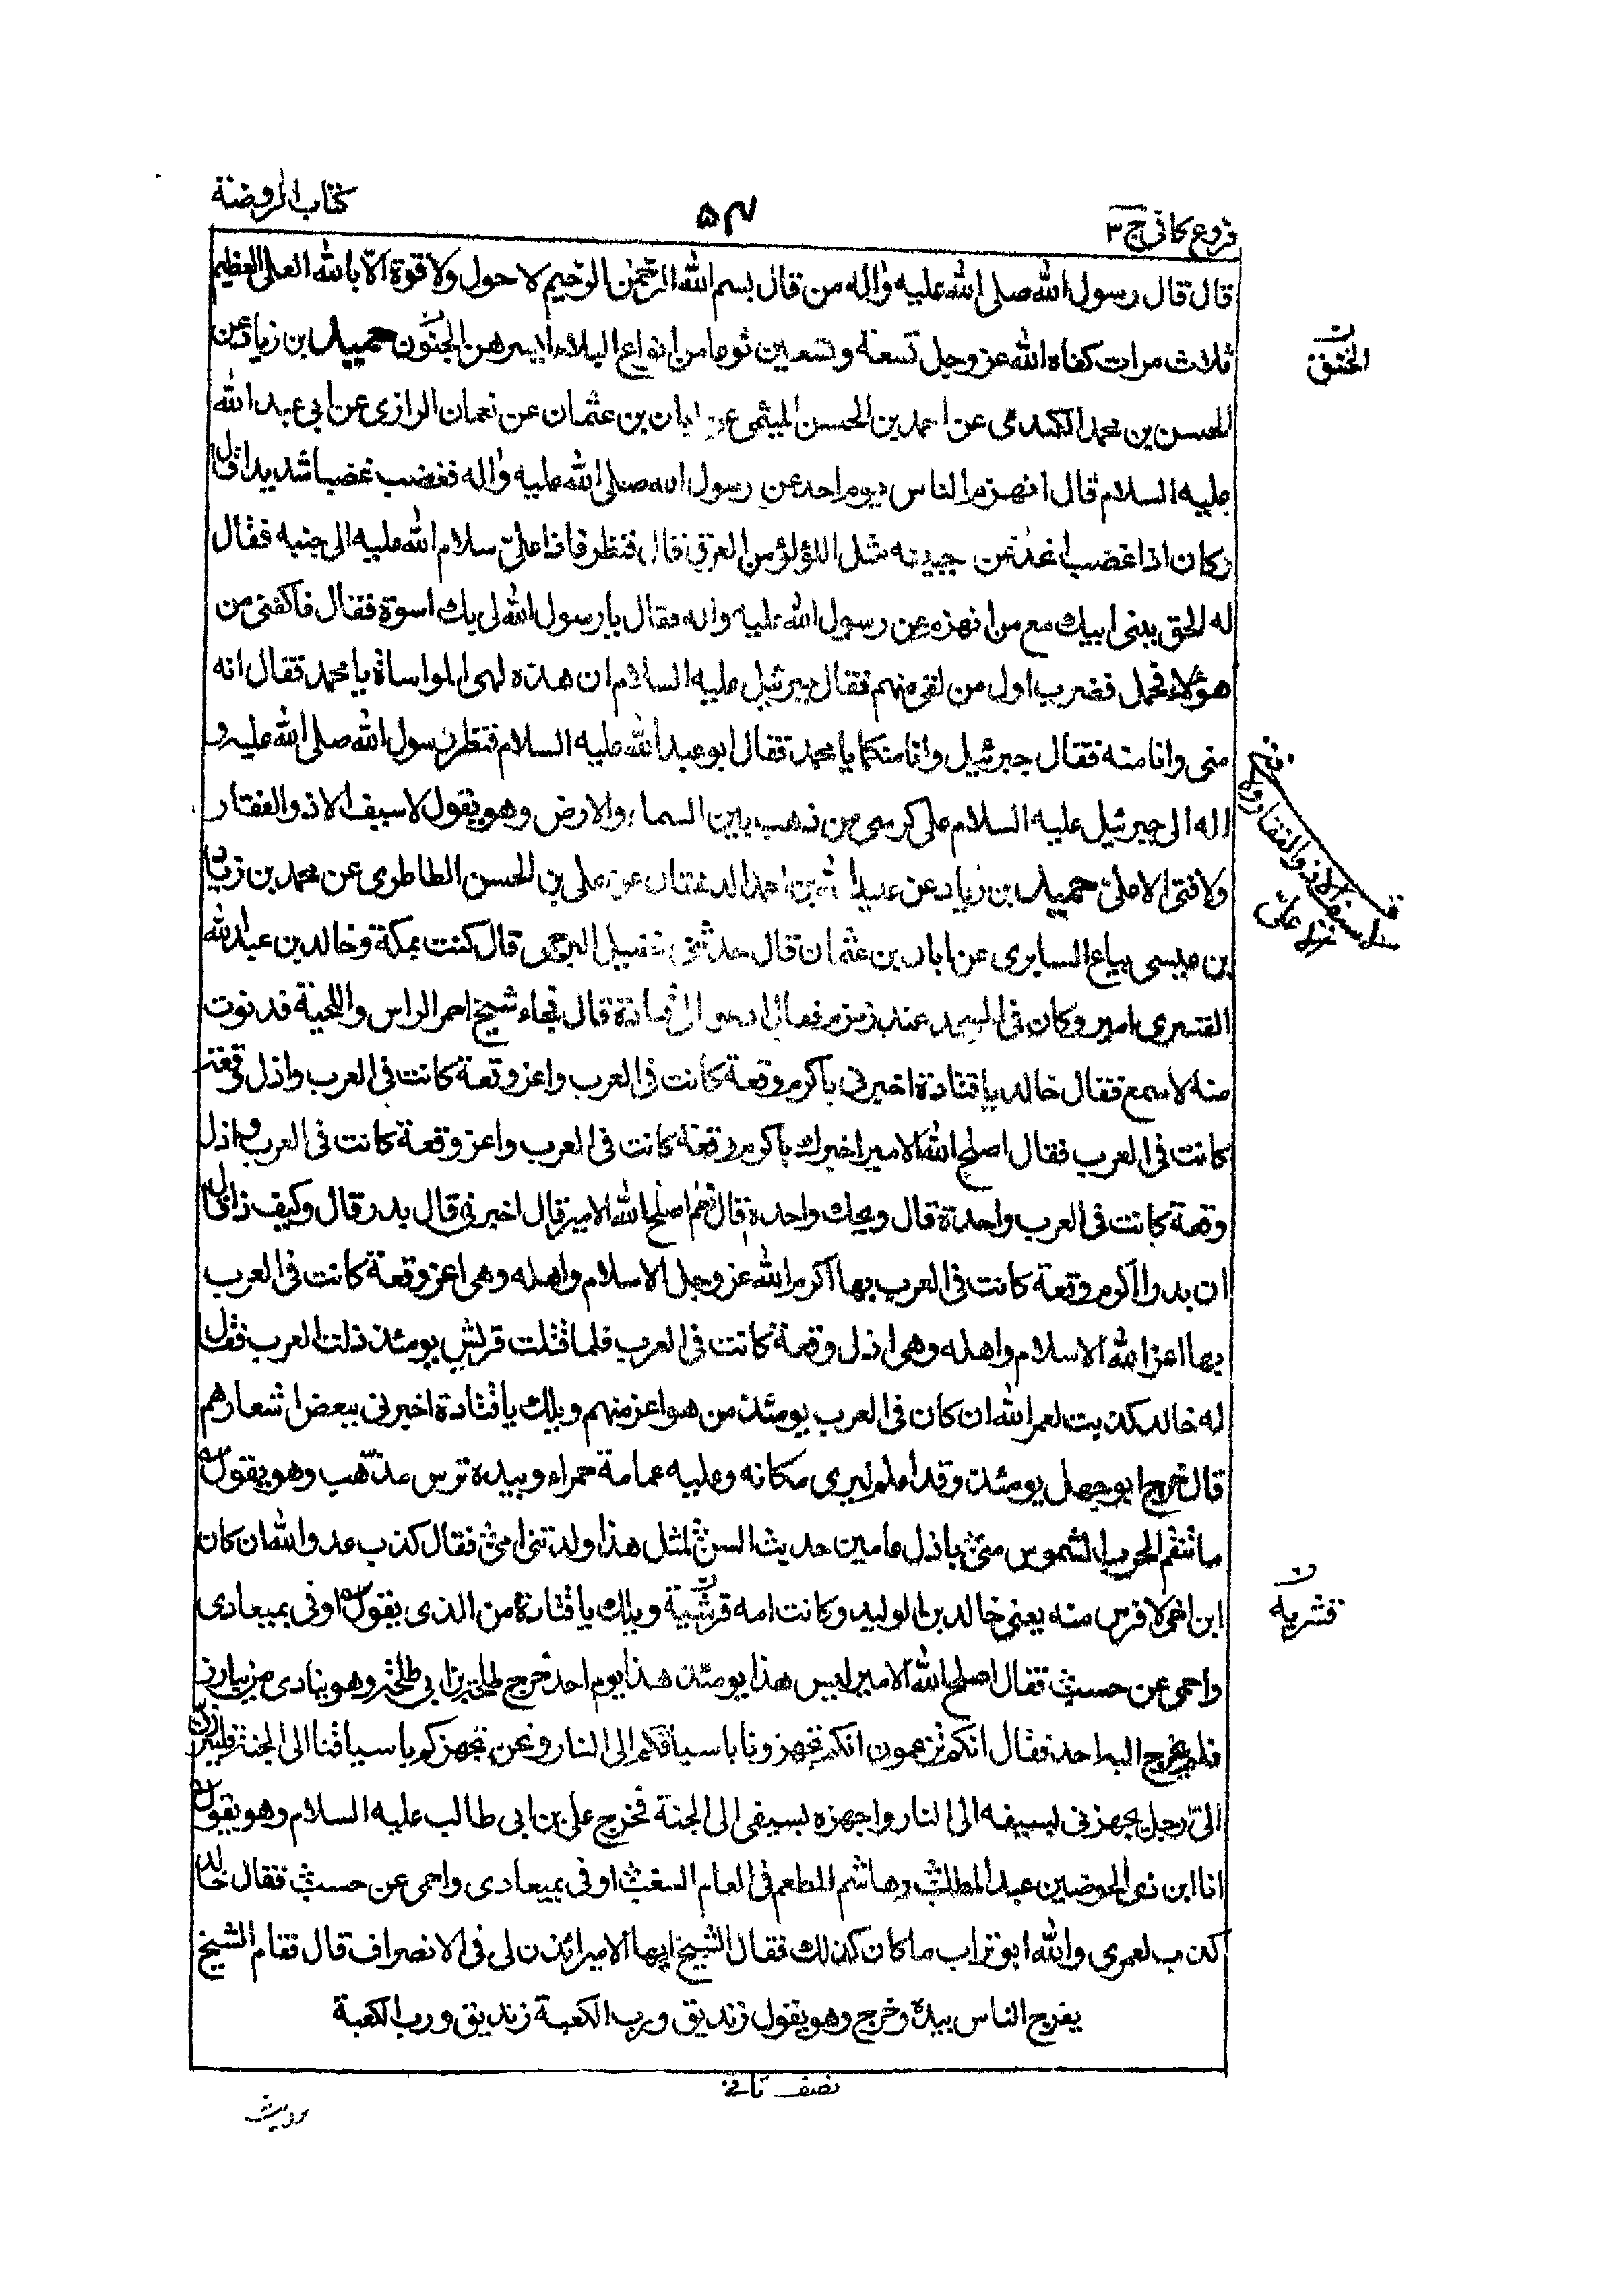 فروع كافى ج ٣
٥٤
كتاب الروضة
قال قال رسول الله صلى الله عليه واله من قال بسم الله الرحمن الرحيم لا حول ولا قوة الا بالله العلى العظيم
ثلاث مرات كفاه الله عز وجل تسعة وتسعين نوعا من انواع البلاء ايسرهن الجنون حميد بن زياد عن
الخنق
الحسن بن محمد الكندى عن احمد بن الحسن الميثمى عن ابان بن عثمان عن نعمان الرازى عن ابى عبد الله
عليه السلام قال انهزم الناس يوم احد عن رسول الله صلى الله عليه واله فغضب غضبا شديدا قال
وكان اذا غضب انحدر عن جبينه مثل اللؤلؤ من العرق قال فنظر فاذا على سلام الله عليه الى جنبه فقال
له الحق ببنى ابيك مع من انهزم عن رسول الله عليه واله فقال يا رسول الله لى بك اسوة فقال فاكفنى من
هؤلاء فحمل فضرب اول من لقى منهم فقال جبرئيل عليه السلام ان هذه لهى المواساة يا محمد فقال انه
منى وانا منه فقال جبرئيل وانا منكما يا محمد فقال ابو عبد الله عليه السلام فنظر رسول الله صلى الله عليه و
اله الى جبرئيل عليه السلام على كرسى من ذهب بين السماء والارض وهو يقول لا سيف الا ذو الفقار
ولا فتى الا على حميد بن زياد عن عبيد الله بن احمد الدهقان عن على بن الحسن الطاطرى عن محمد بن زياد
بن عيسى بياع السابرى عن ابان بن عثمان قال حدثنى فضيل البرجمى قال كنت بمكة وخالد بن عبد الله
القسرى امير وكان فى المسجد عند زمزم فقال ادعوا لى قتادة قال فجاء شيخ احمر الراس واللحية فدنوت
منه لاسمع فقال خالد يا قتادة اخبرنى باكرم وقعة كانت فى العرب واعز وقعة كانت فى العرب واذل وقعة
كانت فى العرب فقال اصلح الله الامير اخبرك باكرم وقعة كانت فى العرب واعز وقعة كانت فى العرب واذل
وقعة كانت فى العرب واحدة قال ويحك واحدة قال نعم اصلح الله الامير قال اخبرنى قال بدر قال وكيف ذا قال
ان بدرا اكرم وقعة كانت فى العرب بها اكرم الله عز وجل الاسلام واهله وهى اعز وقعة كانت فى العرب
بها اعز الله الاسلام واهله وهى اذل وقعة كانت فى العرب فلما قتلت قريش يومئذ ذلت العرب فقال
له خالد كذبت لعمر الله ان كان فى العرب يومئذ من هو اعز منهم ويلك يا قتادة اخبرنى ببعض اشعارهم
قال خرج ابو جهل يومئذ وقد اعلم ليرى مكانه وعليه عمامة حمراء وبيده ترس مذهب وهو يقول
ما تنقم الحرب الشموس منى باذل عامين حديث السن لمثل هذا ولدتنى امى فقال كذب عدو الله ان كان
ابن اخى لافرس منه يعنى خالد بن الوليد وكانت امه قرشية ويلك يا قتادة من الذى يقول اوفى بميعادى
قشرية
واحمى عن حسب فقال اصلح الله الامير ليس هذا يومئذ هذا يوم احد خرج طلحة بن ابى طلحة وهو ينادى من يبارز
فلم يخرج اليه احد فقال انكم تزعمون انكم تجهزونا باسيافكم الى النار ونحن نجهزكم باسيافنا الى الجنة فليبرزن
الى رجل يجهزنى بسيفه الى النار واجهزه بسيفى الى الجنة فخرج على بن ابى طالب عليه السلام وهو يقول
انا ابن ذى الحوضين عبد المطلب وهاشم المطعم فى العام السغب اوفى بميعادى واحمى عن حسب فقال خالد
كذب لعمرى والله ابو تراب ما كان كذلك فقال الشيخ ايها الامير ائذن لى فى الانصراف قال فقام الشيخ
يفرج الناس بيده وخرج وهو يقول زنديق ورب الكعبة زنديق ورب الكعبة
نصف ثانى